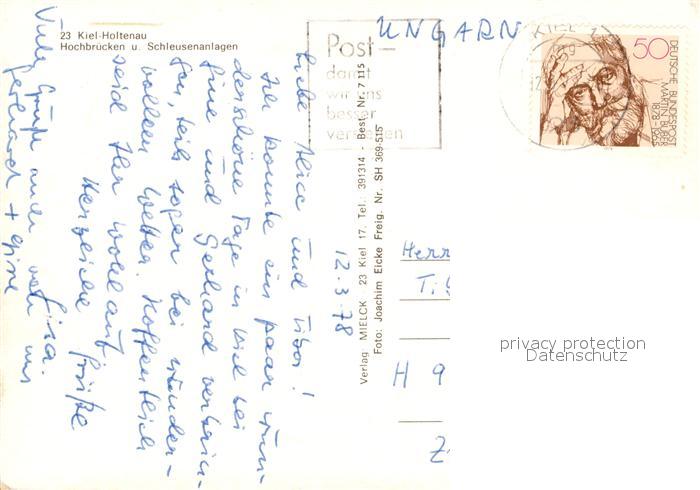 23 Kiel-Holtenau
Hochbrücken u. Schleusenanlagen
UNGARN
Post –
damit
wir uns
besser
verstehen
KIEL 1
50
DEUTSCHE BUNDESPOST
MARTIN BUBER
1878-1965
12.3.78
Liebe und Tibor!
Ich konnte ein paar wun-
derschöne Tage in Kiel bei
Gine und Gerhard verbrin-
gen, teils sogar bei wunder-
vollem Wetter. Hoffentlich
seid Ihr wohlauf.
Herzliche Grüße
Viele Grüße auch von uns
Gerhard +
Verlag MIELCK 23 Kiel 17, Tel. 391314 - Best. Nr. 7 115
Foto: Joachim Eicke Freig. Nr. SH 369-515
Herr
H 9
Z
privacy protection
Datenschutz